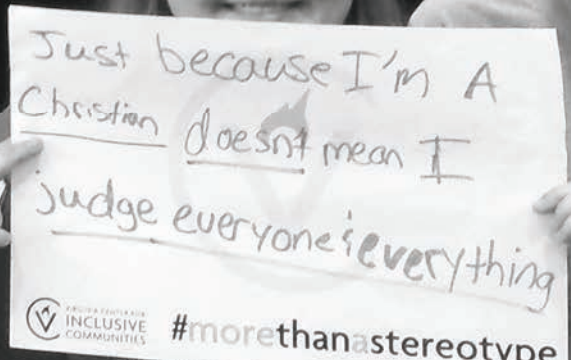 Just because I'm A
Christian doesn't mean I
judge everyone & everything
INCLUSIVE
COMMUNITIES
#morethanastereotype